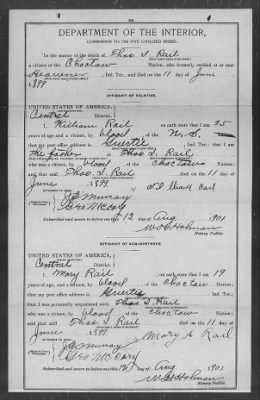 DEPARTMENT OF THE INTERIOR,
COMMISSION TO THE FIVE CIVILIZED TRIBES.
In the matter of the death of Thos. S. Rail
a citizen of the Choctaw Nation, who formerly resided at or near
Heavener, Ind. Ter., and died on the 11 day of June
1899
AFFIDAVIT OF RELATIVE.
UNITED STATES OF AMERICA,
Central District.
I, William Rail on oath state that I am 25
years of age and a citizen, by blood of the U.S.
that my post office address is Ind. Ter.; that I am
the father of Thos. S. Rail
who was a citizen, by blood of the Choctaw Nation;
and that said Thos. S. Rail died on the 11 day of
June 1899.
Murray
Geo McCoy
Subscribed and sworn to before me this 12 day of Aug 1901
Notary Public.
AFFIDAVIT OF ACQUAINTANCE.
UNITED STATES OF AMERICA,
Central District.
I, Mary Rail on oath state that I am 19
years of age, and a citizen by blood of the Choctaw Nation;
that my post office address is Ind. Ter.;
that I was personally acquainted with Thos. S. Rail
who was a citizen, by blood of the Choctaw Nation;
and that said Thos. S. Rail died on the 11 day of
June 1899
Mary Rail
Murray
Geo McCoy
Subscribed and sworn to before me this 12 day of Aug 1901
Notary Public.